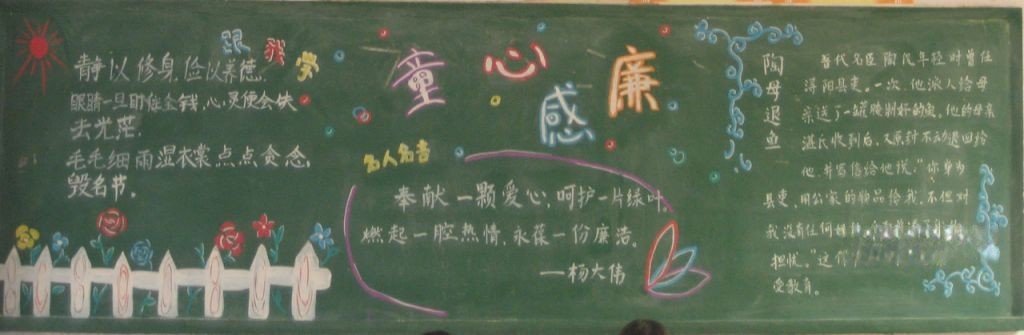 跟我学
静以修身,俭以养德。
眼睛一旦盯住金钱,心灵便会失
去光茫。
毛毛细雨湿衣裳,点点贪念,
毁名节。
童心感廉
名人名言
奉献一颗爱心,呵护一片绿叶,
燃起一腔热情,永葆一份廉洁。
—杨大伟
陶母退鱼
晋代名臣陶侃年轻时曾任
浔阳县吏。一次,他派人给母
亲送了一罐腌制好的鱼,他的母亲
湛氏收到后,又原封不动退回给
他,并写信给他说:"你身为
县吏,用公家的物品给我,不但对
我没有任何
担忧。"这
受教育。